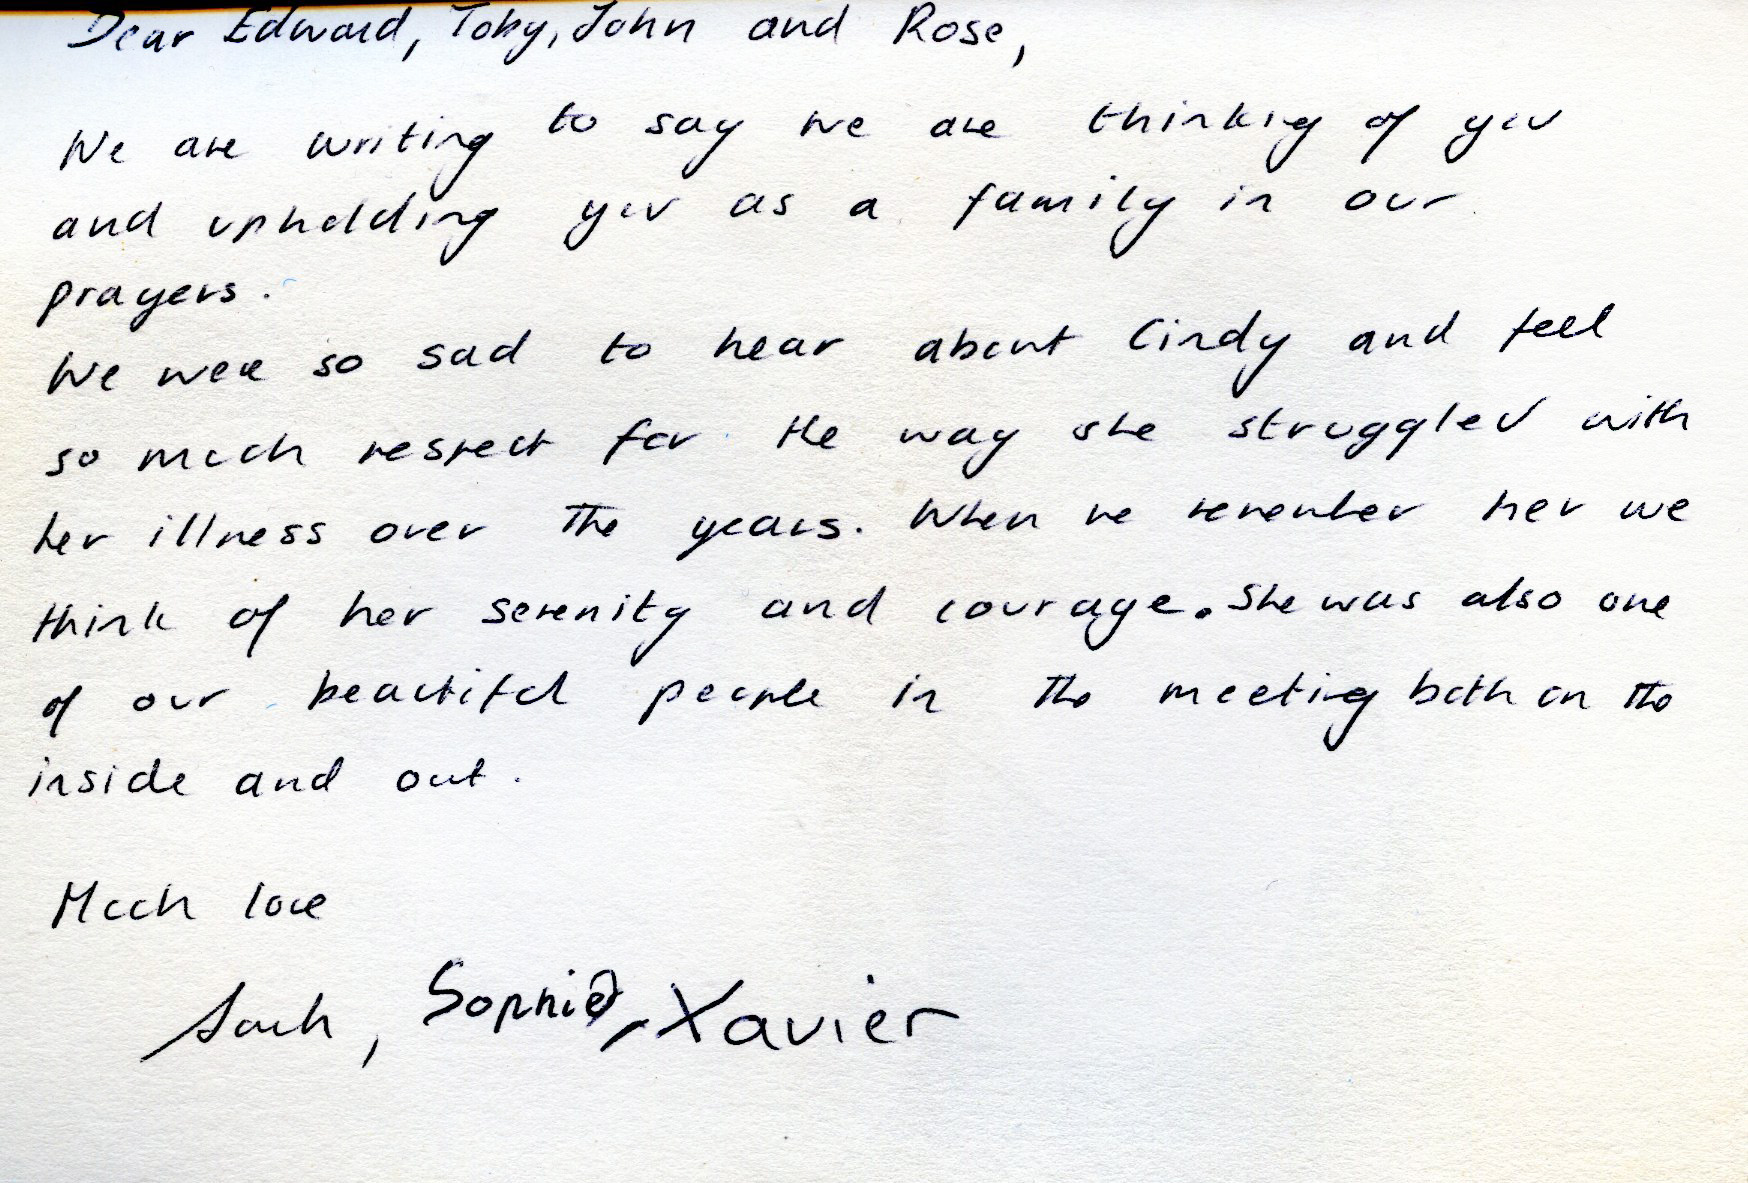 Dear Edward, Toby, John and Rose,
We are writing to say we are thinking of you
and upholding you as a family in our
prayers.
We were so sad to hear about Cindy and feel
so much respect for the way she struggled with
her illness over the years. When we remember her we
think of her serenity and courage. She was also one
of our beautiful people in the meeting both on the
inside and out.
Much love
Sophie, Xavier